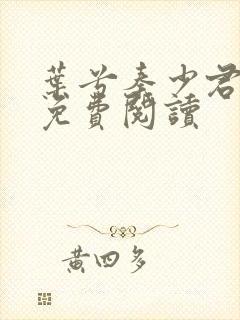 葉苦秦少君
免費閱讀
黃四多